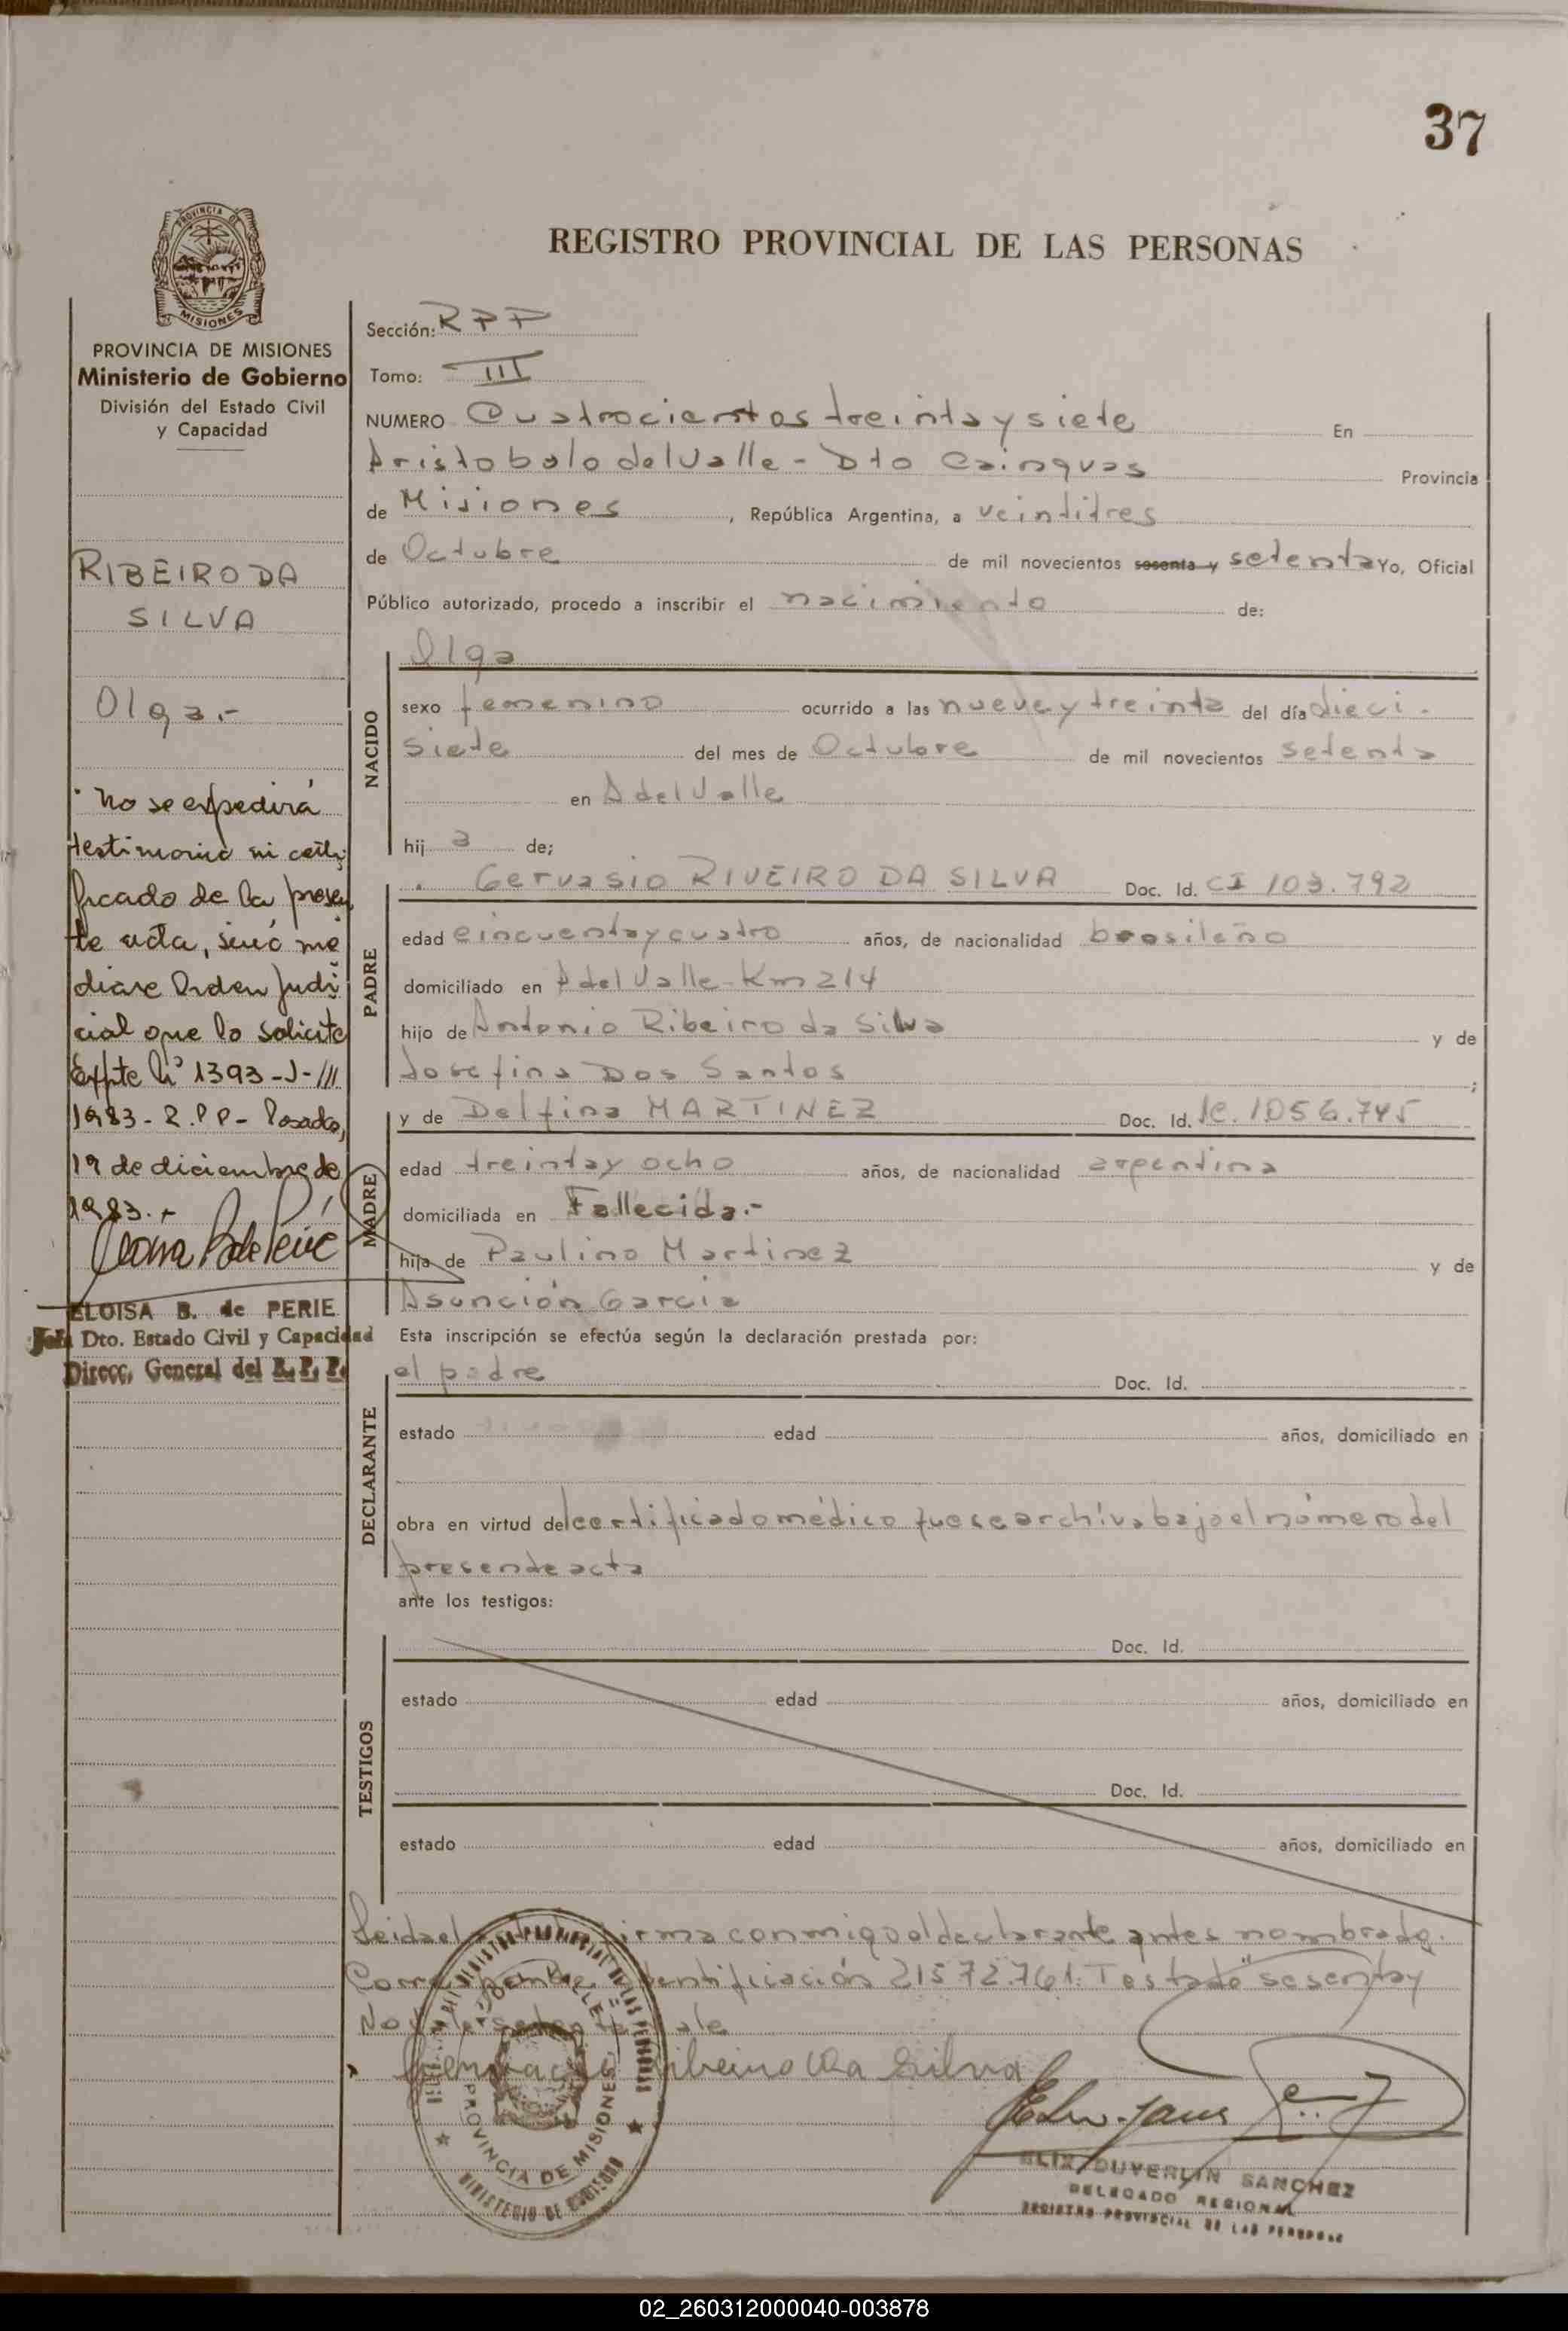 37
REGISTRO PROVINCIAL DE LAS PERSONAS
PROVINCIA DE MISIONES
Ministerio de Gobierno
División del Estado Civil
y Capacidad
RIBEIRO DA
SILVA
Olga.-
No se expedirá
testimonio ni certi
ficado de la presen
te acta, sinó me
diare Orden Judi
cial que lo solicite
Expte Nº 1393-J-///
1983- R.P.P- Posadas,
19 de diciembre de
1983.-
ELOISA B. de PERIE
Jefa Dto. Estado Civil y Capacidad
Direcc. General del R. P. P.
Sección: RPP
Tomo: III
NUMERO Cuatrocientos treinta y siete En
Aristobolo del Valle - Dto Cainguas Provincia
de Misiones, República Argentina, a veintitres
de Octubre de mil novecientos sesenta y setenta Yo, Oficial
Público autorizado, procedo a inscribir el nacimiento de:
NACIDO
Olga
sexo femenino ocurrido a las nueve y treinta del día dieci-
siete del mes de Octubre de mil novecientos setenta
en A del Valle
hija de;
PADRE
Gervasio RIVEIRO DA SILVA Doc. Id. CI 103.792
edad cincuenta y cuatro años, de nacionalidad brasileño
domiciliado en A del Valle-Km 214
hijo de Antonio Ribeiro da Silva y de
Josefina Dos Santos ;
MADRE
y de Delfina MARTINEZ Doc. Id. 1.056.745
edad treinta y ocho años, de nacionalidad argentina
domiciliada en Fallecida.-
hija de Paulino Martinez y de
Asunción Garcia
Esta inscripción se efectúa según la declaración prestada por:
DECLARANTE
el padre Doc. Id.
estado edad años, domiciliado en
obra en virtud del certificado médico que se archiva bajo el número del
presente acta
ante los testigos:
TESTIGOS
Doc. Id.
estado edad años, domiciliado en
Doc. Id.
estado edad años, domiciliado en
Leida el firma conmigo el declarante antes nombrado.
Corresponde identificiación 21572.761. Testado "sesenta y
No vale setenta vale
Ribeiro Da Silva
PROVINCIA DE MISIONES
MINISTERIO DE GOBIERNO
ELIX DUVERLIN SANCHEZ
DELEGADO REGIONAL
REGISTRO PROVINCIAL DE LAS PERSONAS
02_260312000040-003878